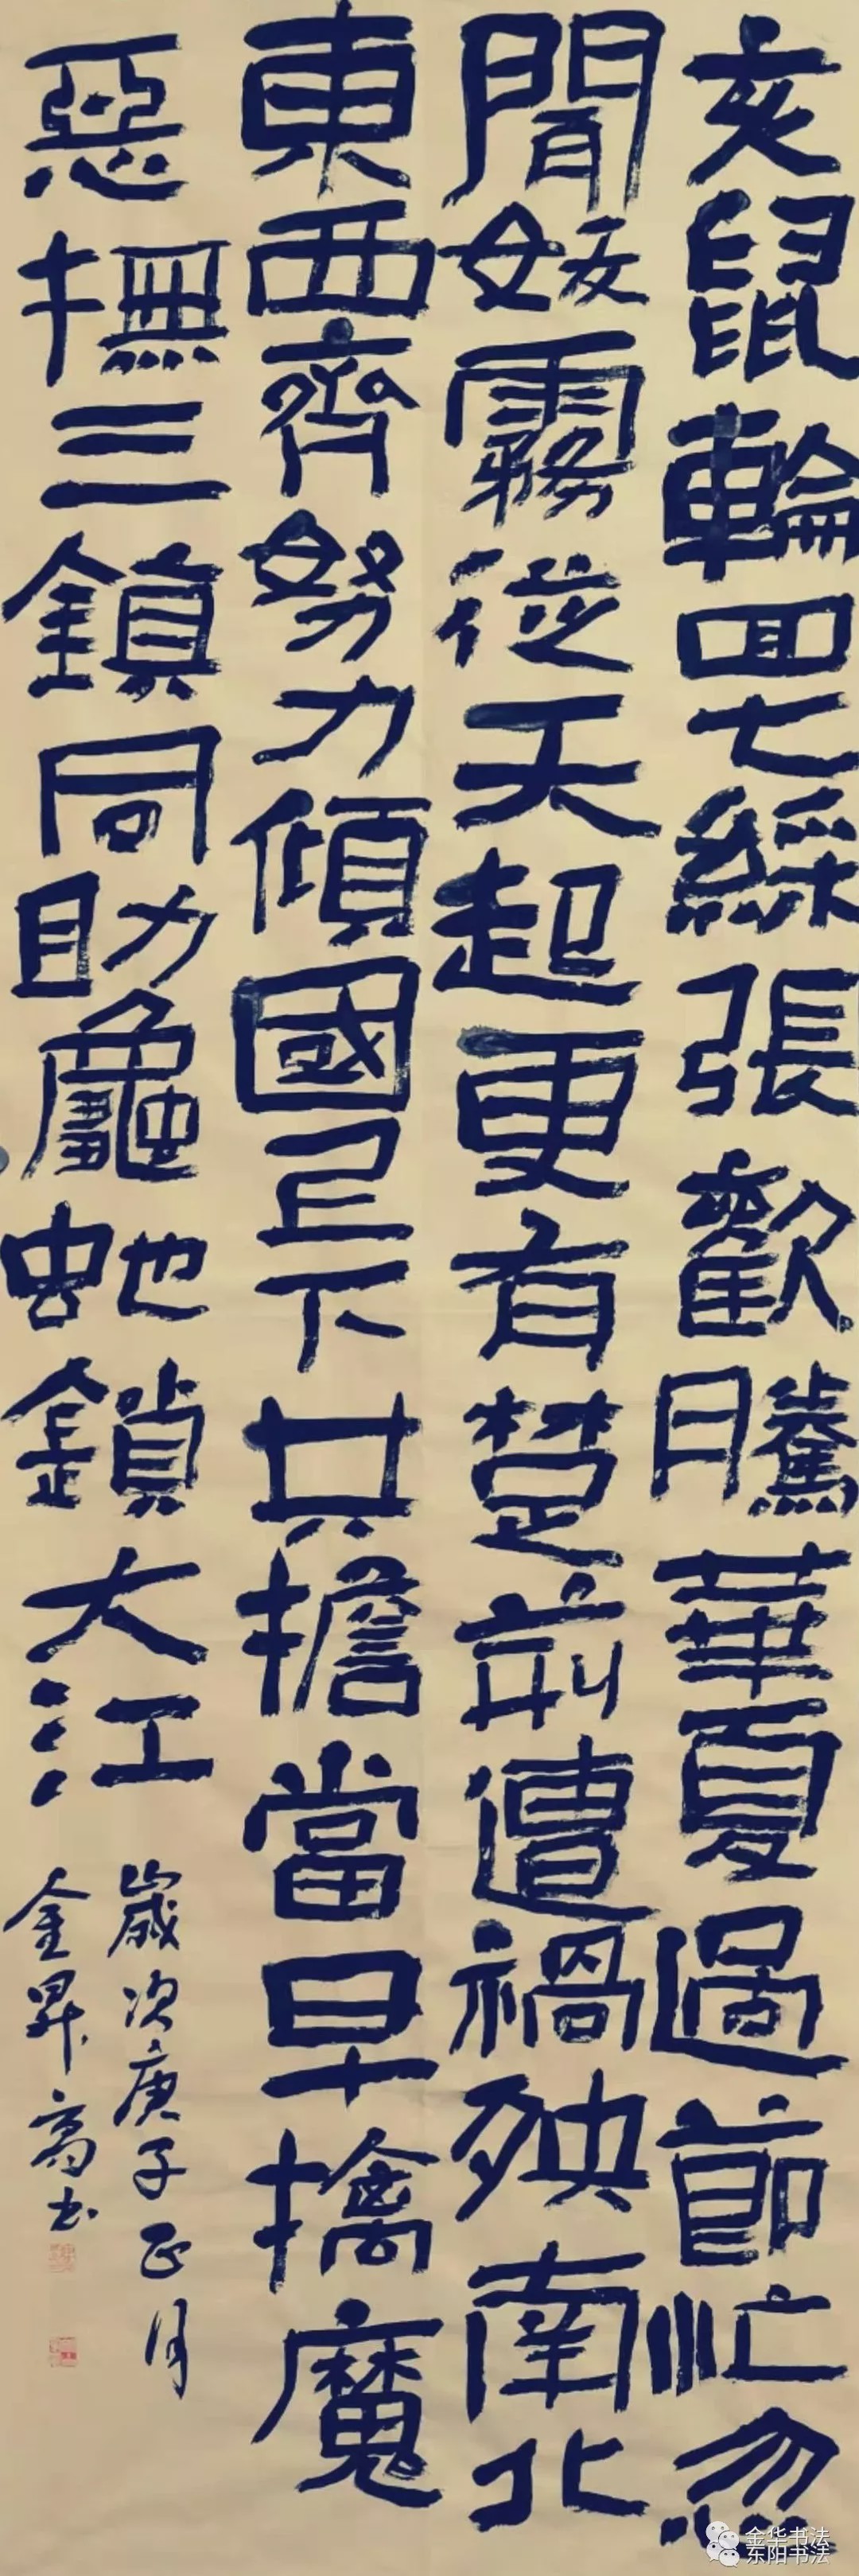 亥鼠輪回七綵張歡騰華夏過節忙忽
聞妖霧從天起更有楚荊遭禍殃南北
東西齊努力傾國上下共擔當早擒魔
惡撫三鎮同助龜蛇鎖大江
歲次庚子正月
金昇高书
金华书法
东阳书法